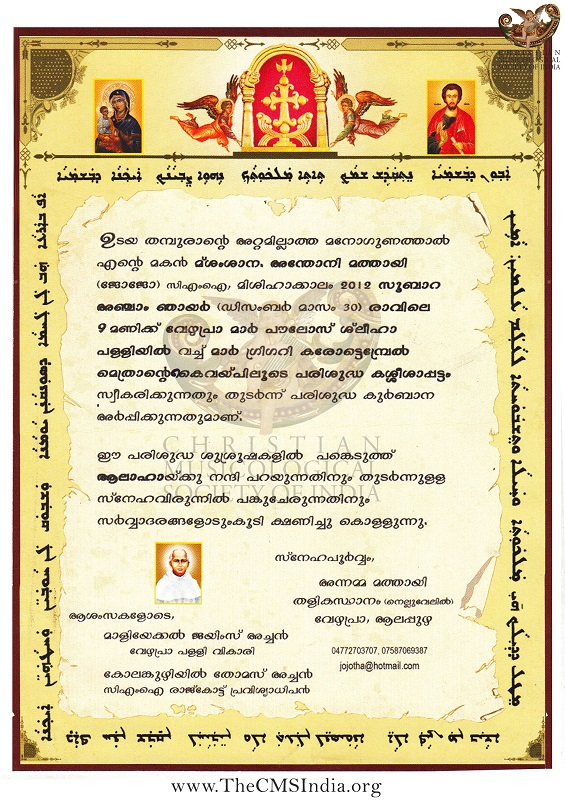 ܐܒܘܢ ܕܒܫܡܝܐ ܢܬܩܕܫ ܫܡܟ ܬܐܬܐ ܡܠܟܘܬܟ ܢܗܘܐ ܨܒܝܢܟ ܐܝܟܢܐ ܕܒܫܡܝܐ
ഉടയ തമ്പുരാന്റെ അറ്റമില്ലാത്ത മനോഗുണത്താൽ
എന്റെ മകൻ മ്ശംശാന. അന്തോനി മത്തായി
(ജോജോ) സിഎംഐ, മിശിഹാക്കാലം 2012 സൂബാറ
അഞ്ചാം ഞായർ (ഡിസംബർ മാസം 30) രാവിലെ
9 മണിക്ക് വേഴപ്രാ മാർ പൗലോസ് ശ്ലീഹാ
പള്ളിയിൽ വച്ച് മാർ ഗ്രിഗറി കരോട്ടെമ്പ്രേൽ
മെത്രാന്റെകൈവയ്പിലൂടെ പരിശുദ്ധ കശ്ശീശാപ്പട്ടം
സ്വീകരിക്കുന്നതും തുടർന്ന് പരിശുദ്ധ കുർബാന
അർപ്പിക്കുന്നതുമാണ്.
CHRISTIAN
MUSICOLOGICAL
SOCIETY OF INDIA
ഈ പരിശുദ്ധ ശുശ്രൂഷകളിൽ പങ്കെടുത്ത്
ആലാഹായ്ക്കു നന്ദി പറയുന്നതിനും തുടർന്നുള്ള
സ്നേഹവിരുന്നിൽ പങ്കുചേരുന്നതിനും
സർവ്വാദരങ്ങളോടുംകൂടി ക്ഷണിച്ചു കൊള്ളുന്നു.
സ്നേഹപൂർവ്വം,
അന്നമ്മ മത്തായി
തളികസ്ഥാനം (നെല്ലുവേലിൽ)
വേഴപ്രാ, ആലപ്പുഴ
04772703707, 07587069387
jojotha@hotmail.com
ആശംസകളോടെ,
മാളിയേക്കൽ ജയിംസ് അച്ചൻ
വേഴപ്രാ പള്ളി വികാരി
കോലങ്കുഴിയിൽ തോമസ് അച്ചൻ
സിഎംഐ രാജ്കോട്ട് പ്രവിശ്യാധിപൻ
www.TheCMSIndia.org